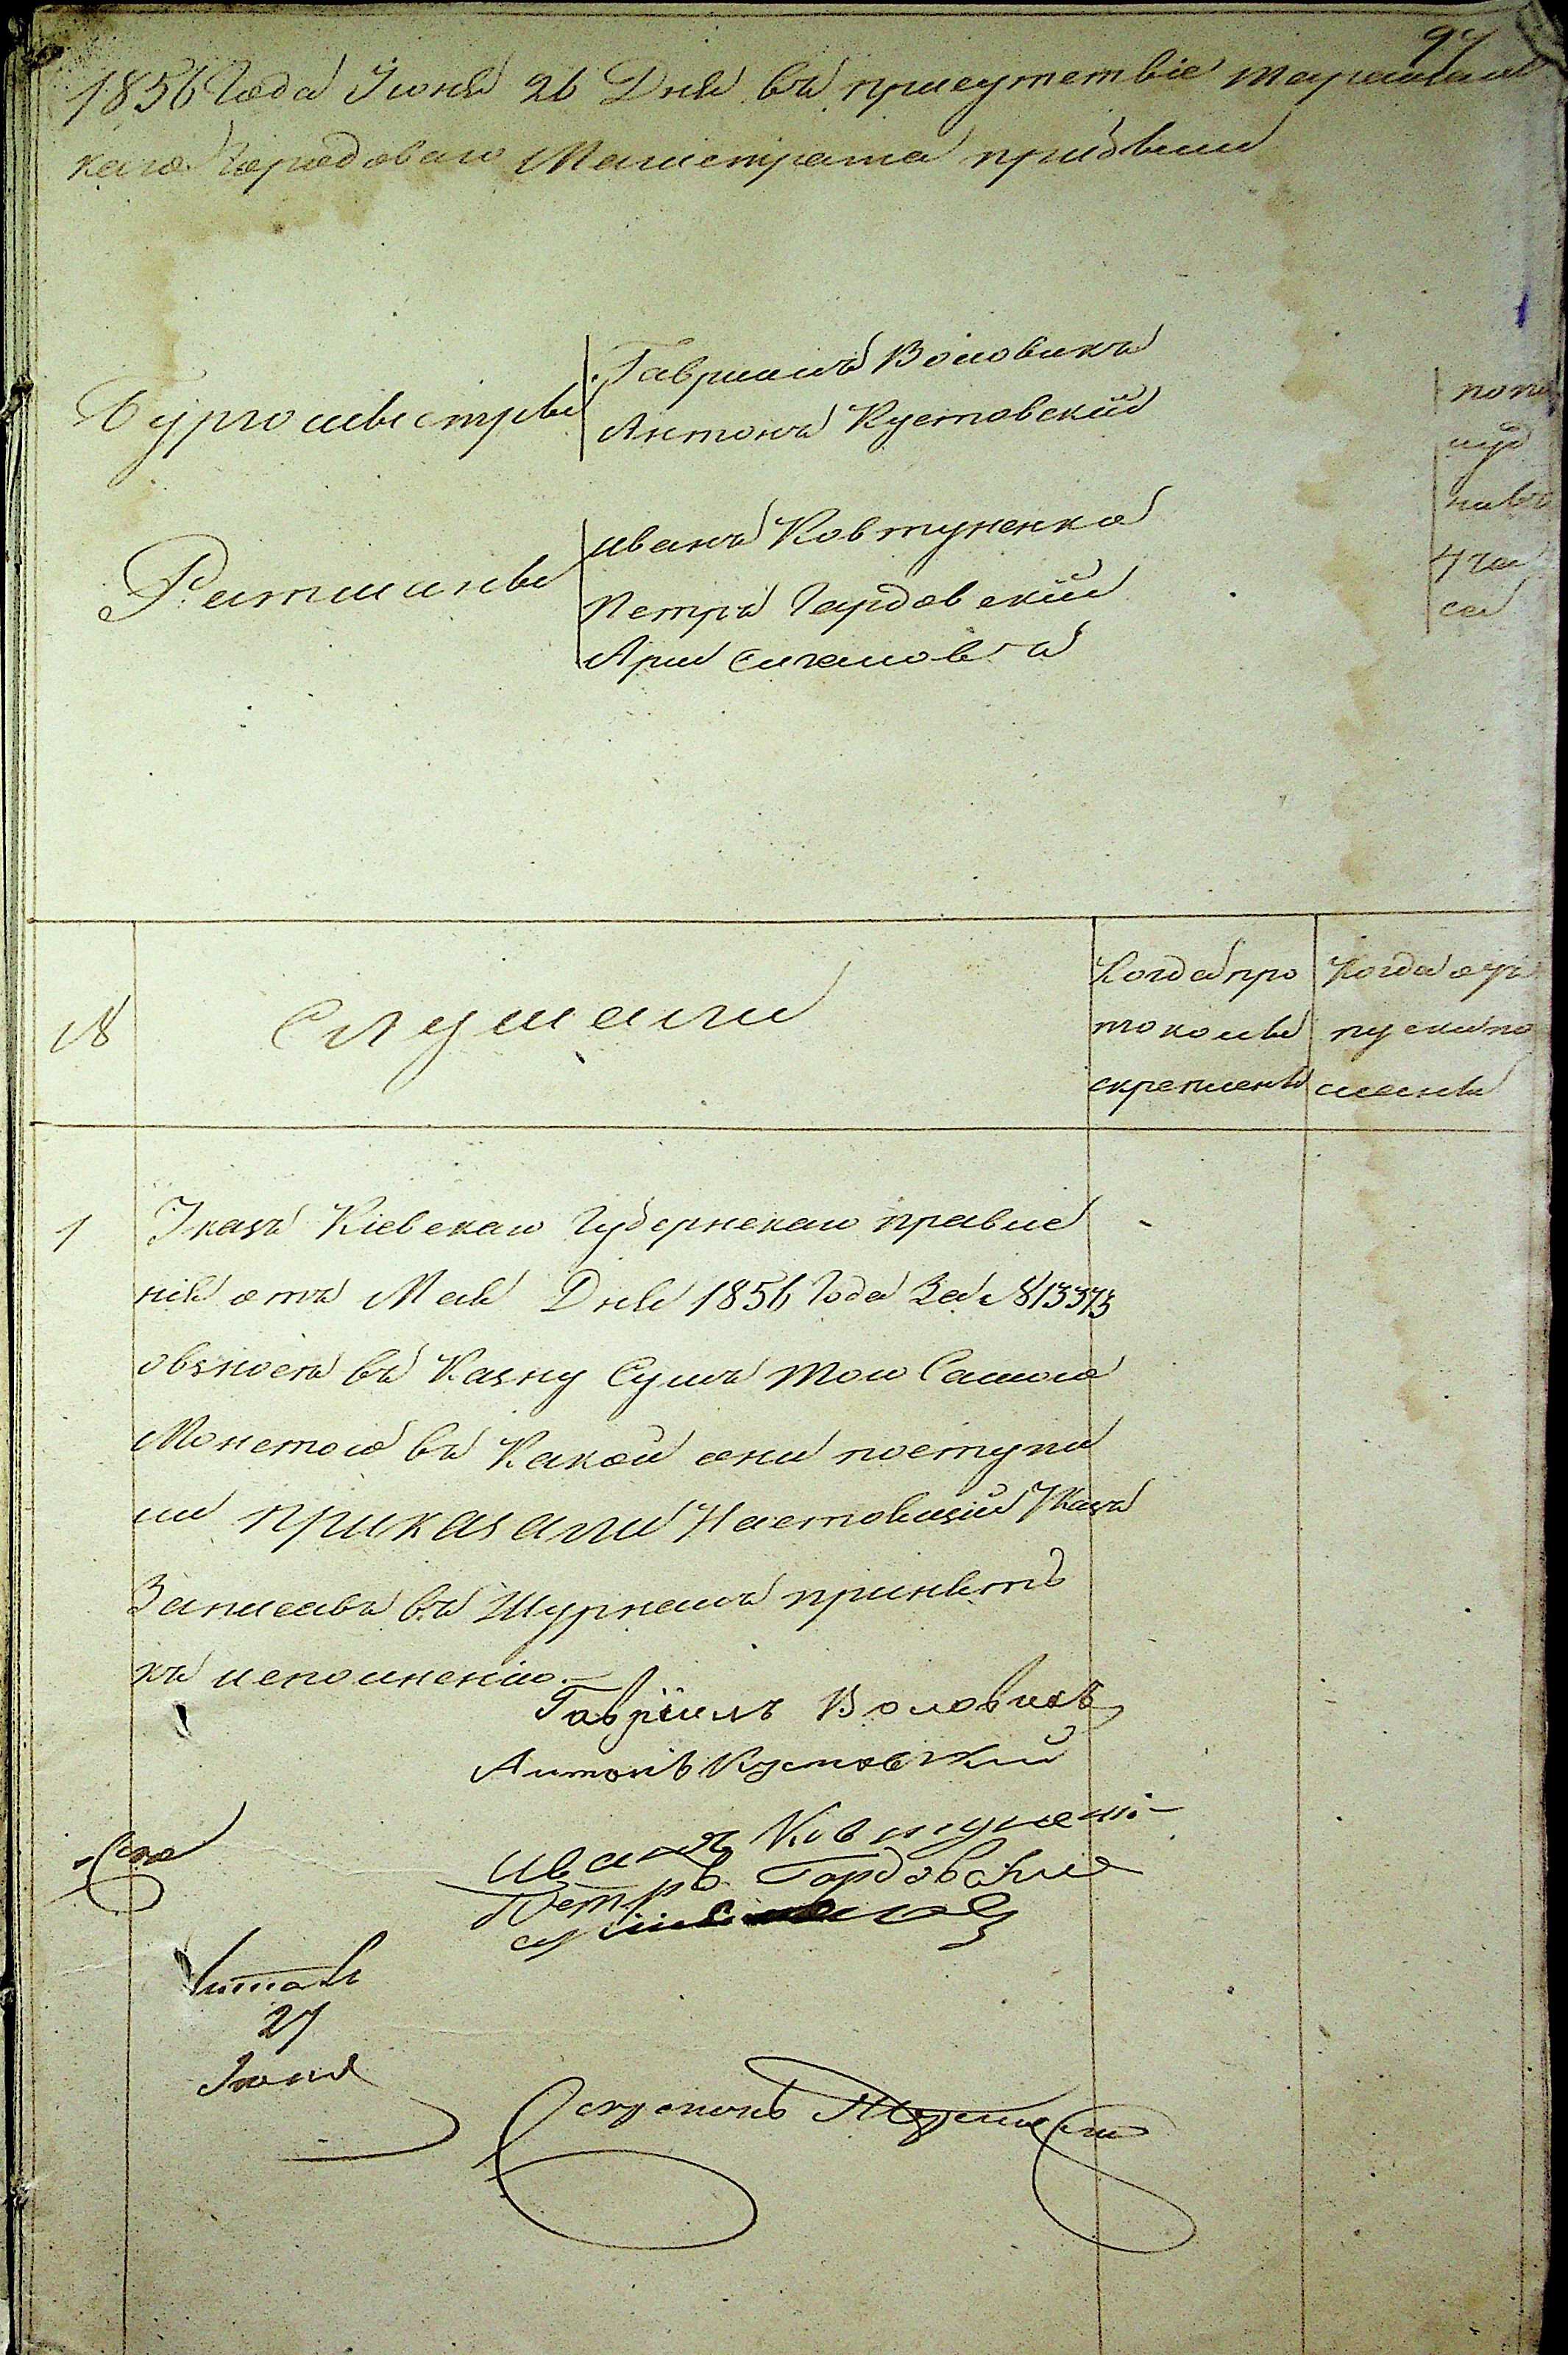 97
1856 Года Іюня 26 Дня въ присутствіе Таращанс
каго Городоваго Магистрата прибыли
Бургомыстры
Гавриилъ Воловикъ
Антонъ Кустовскій
Ратманы
Иванъ Ковтуненко
Петръ Гардовскій
Арш
попо
пуд
ча
са
№
Слушали
Когда про
токолы
скреплены
Когда от
пуски по
сланы
1
Указъ Кіевскаго Губернскаго правле
нія отъ Мая Дня 1856 Года За №13373
овзносѣ въ Казну Сумъ тою Самою
Монетою въ Какой они поступи
ли приказали Настоящій Указъ
Записавъ въ Журналъ принять
къ исполненію.
Гавріилъ Воловикъ
Антонъ Кустовский
Иванъ Ковтуненко
Петръ Гордовский
Читалъ
27
Іюня
Секретарь